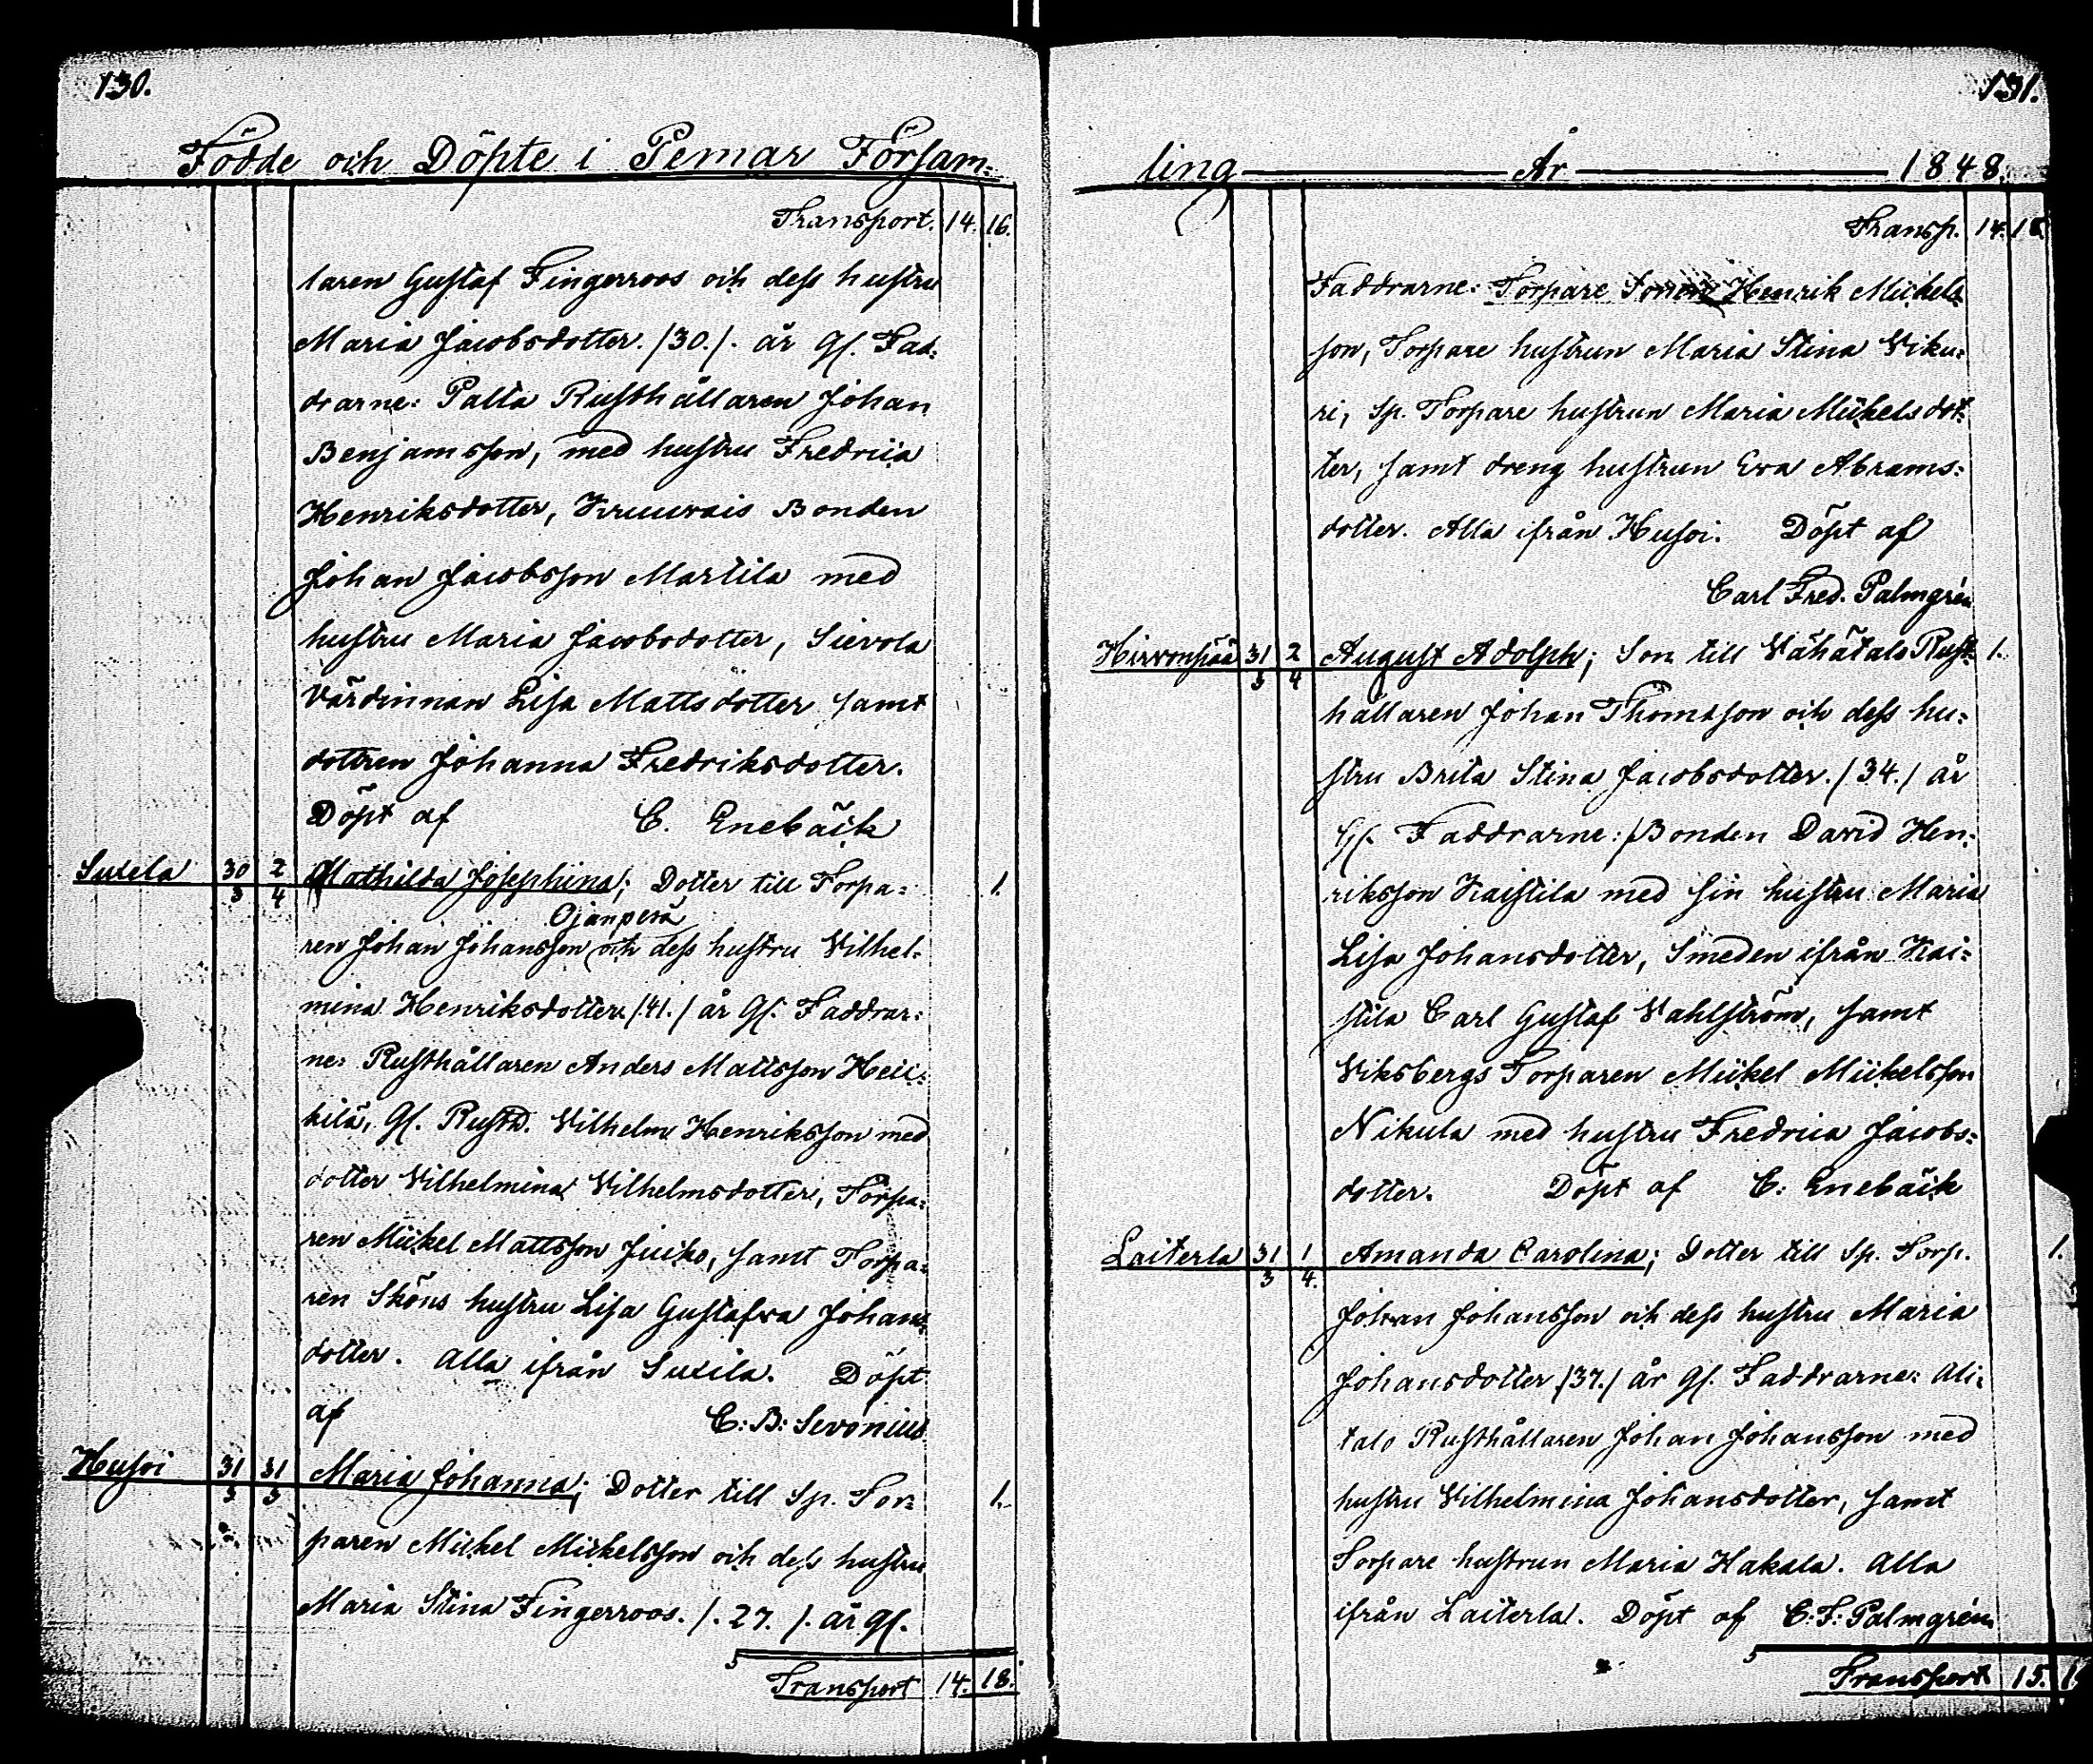 130.
Födde och Döpte i Pemar Försam:
Transport. 14. 16.
laren Gustaf Fingerroos och dess hustru
Maria Jacobsdotter. /30./. år Gl. Fad:
drarne: Palta Rusthållaren Johan
Benjamsson, med hustru Fredrica
Henriksdotter, Kruuvais Bonden
Johan Jacobsson Martila med
hustru Maria Jacobsdotter, Sievola
Värdinnan Lisa Mattsdotter samt
dottren Johanna Fredriksdotter.
Döpt af C. Enebäck
Suxela 30/3 2/4 Mathilda Josephina; Dotter till Torpa: 1.
Ojanperä
ren Johan Johansson och dess hustru Vilhel:
mina Henriksdotter /41./ år Gl. Faddrar:
ne: Rusthållaren Anders Mattsson Heic:
kilä, Gl. Rusth. Vilhelm Henriksson med
dotter Vilhelmina Vilhelmsdotter, Torpa:
ren Mickel Mattsson Juiko, samt Torpa:
ren Sköns hustru Lisa Gustafva Johans
dotter. Alla ifrån Suxila. Döpt
af C: B: Sevonius
Husoi 31/3 31/3 Maria Johanna; Dotter till Sp. Tor: 1.
paren Mickel Mickelsson och dess hustru
Maria Stina Fingerroos. /. 27. /. år Gl.
Transport 14. 18.
131.
ling År 1848.
Transp. 14. 18.
Faddrarne: Torpare Henrik Mickels
son, Torpare hustrun Maria Stina Viku:
ri, Sp. Torpare hustrun Maria Mickelsdot:
ter, samt dreng hustrun Eva Abrams:
dotter. Alla ifrån Husoi. Döpt af
Carl Fred. Palmgrén
Hirvonpää 31/3 2/4 August Adolph; Son till Vähätalo Rust 1.
hållaren Johan Thomasson och dess hu:
stru Brita Stina Jacobsdotter. /34./ år
Gl. Faddrarne: Bonden David Hen:
riksson Kaistila med sin hustru Maria
Lisa Johansdotter, Smeden ifrån Kai:
stila Carl Gustaf Vahlström, samt
Viksbergs Torparen Mickel Mickelsson
Nikula med hustru Fredrica Jacobs:
dotter. Döpt af C: Enebäck
Laiterla 31/3 1/4. Amanda Carolina; Dotter till Sp. Torp. 1.
Johan Johansson och dess hustru Maria
Johansdotter /37./ år Gl. Faddrarne: Ali:
talo Rusthållaren Johan Johansson med
hustru Vilhelmina Johansdotter, samt
Torpare hustrun Maria Hakala. Alla
ifrån Laiterla. Döpt af C: F: Palmgrén
Transport 15.